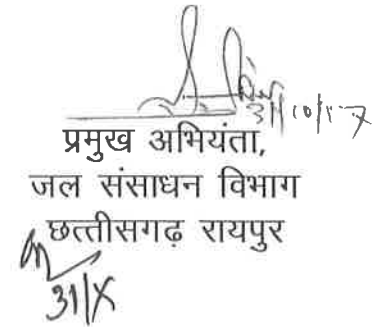 31/10/17
प्रमुख अभियंता,
जल संसाधन विभाग
छत्तीसगढ़ रायपुर
31/X